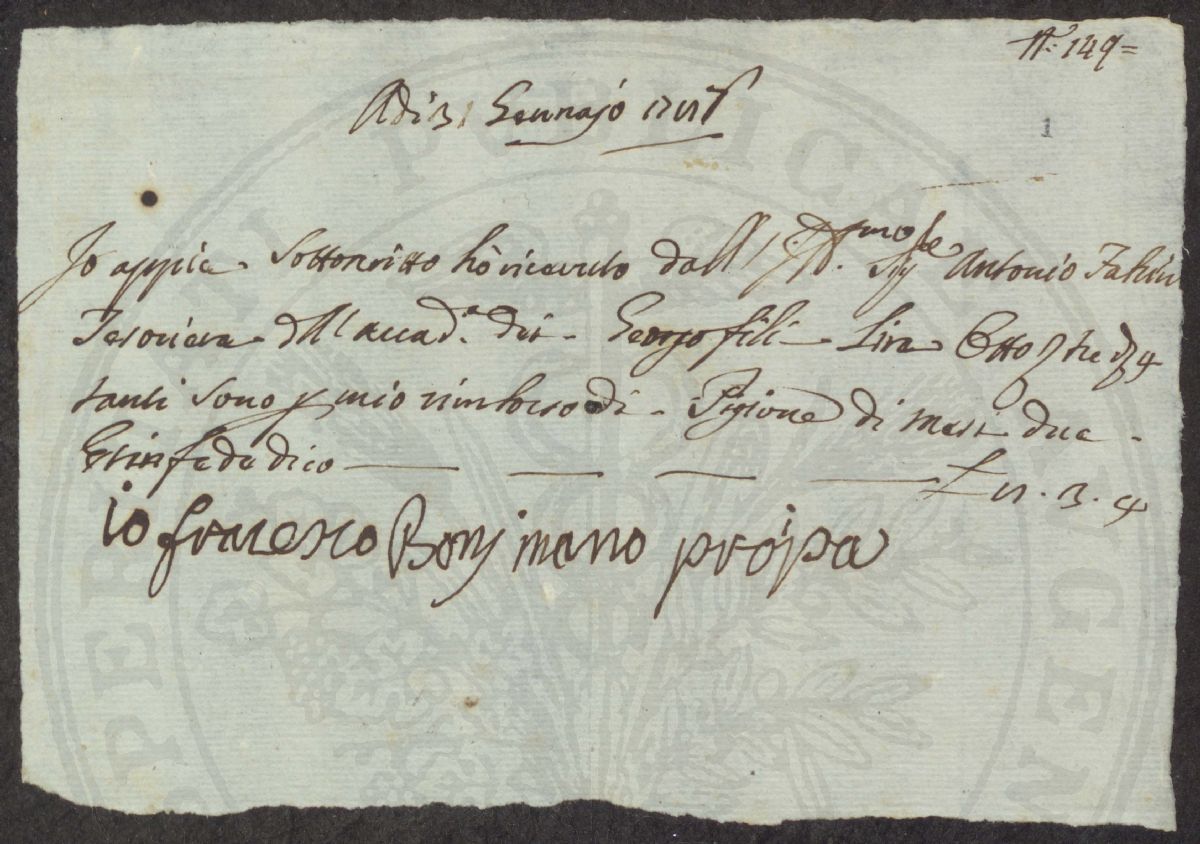 N.° 149=
Adi 31 Gennajo
1
Io appiè Sottoscritto hò ricevuto dall' Sig.re Antonio
Tesoriere dell'accad.a dei Georgofili Lire Otto
tanti sono p mio rimborso di Pigione di Mesi due
E in fede dico
io Francesco mano propia